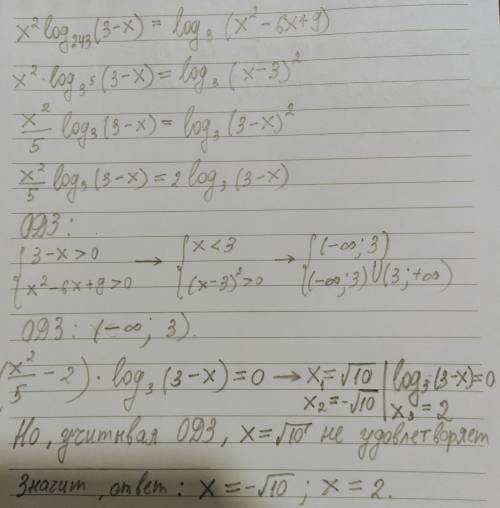 x² log₂₄₃(3-x) = log₃(x²-6x+9)
x²·log₃⁵(3-x) = log₃(x-3)²
x²/5 log₃(3-x) = log₃(3-x)²
x²/5 log₃(3-x) = 2 log₃(3-x)
ОДЗ:
{3-x>0 → {x<3 → {(-∞; 3)
{x²-6x+9>0 {(x-3)²>0 {(-∞; 3)∪(3; +∞)
ОДЗ: (-∞; 3).
(x²/5 - 2)·log₃(3-x)=0 → x₁=√10 | log₃(3-x)=0
x₂=-√10 | x₃=2
Но, учитывая ОДЗ, x=√10 не удовлетворяет
Значит, ответ: x=-√10; x=2.